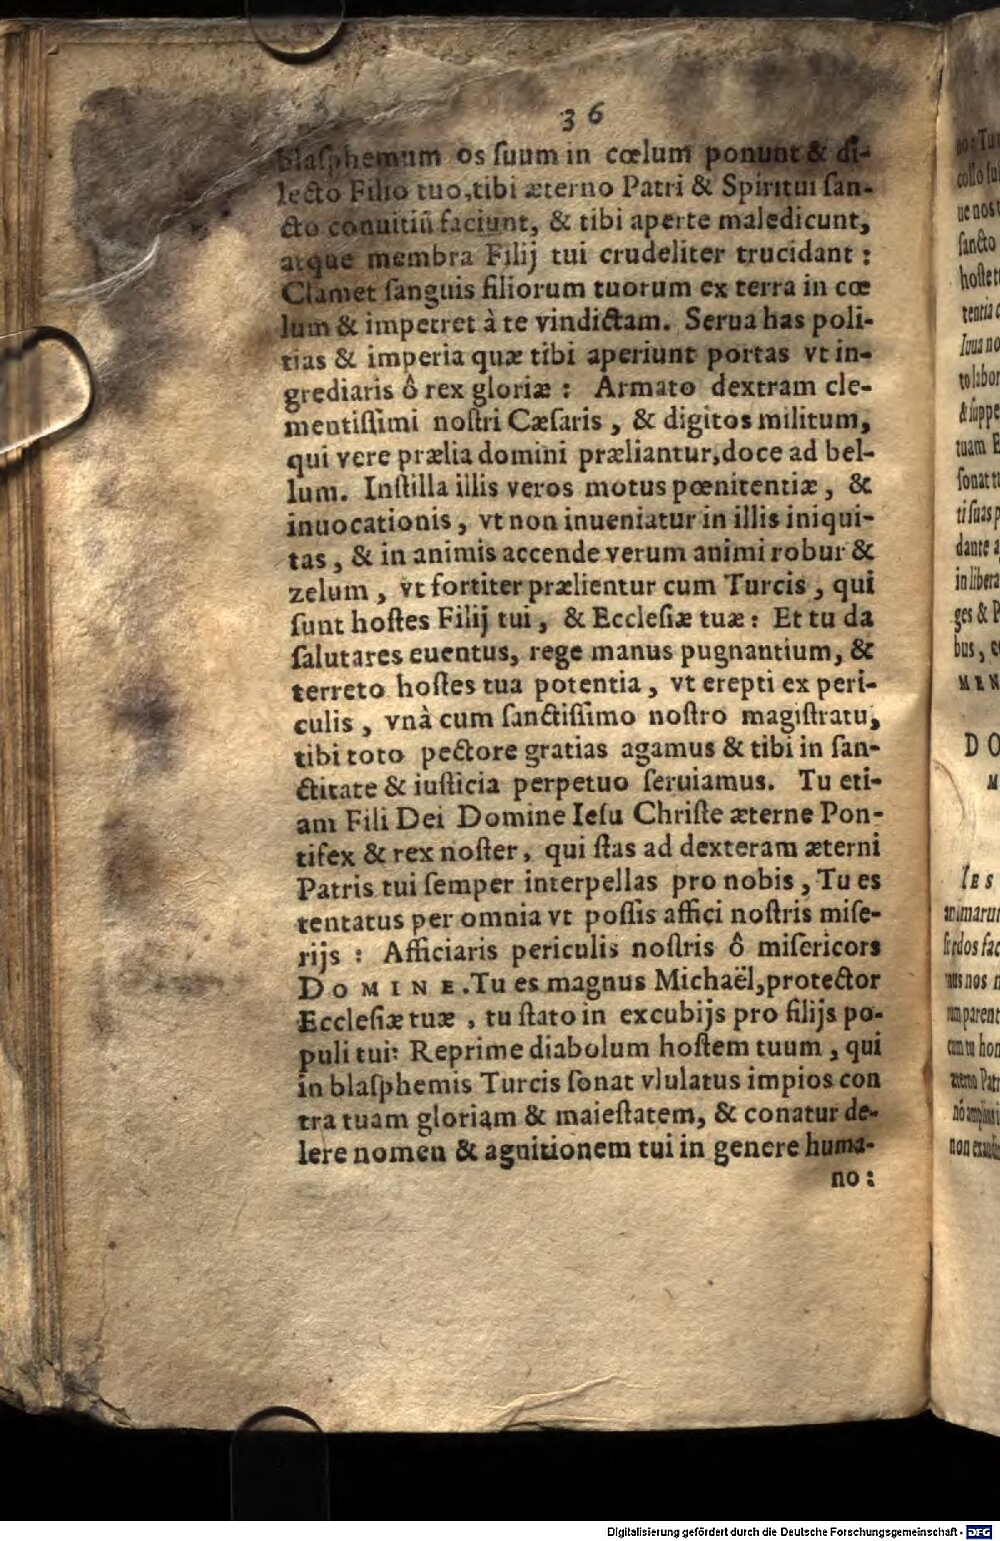 36
blaſphemum os ſuum in cœlum ponunt & di-
lecto Filio tuo, tibi æterno Patri & Spiritui ſan-
cto conuitiũ faciunt, & tibi aperte maledicunt,
atque membra Filij tui crudeliter trucidant :
Clamet ſanguis filiorum tuorum ex terra in cœ
lum & impetret à te vindictam. Serua has poli-
tias & imperia quæ tibi aperiunt portas vt in-
grediaris ô rex gloriæ : Armato dextram cle-
mentiſſimi noſtri Cæſaris , & digitos militum,
qui vere prælia domini præliantur, doce ad bel-
lum. Inſtilla illis veros motus pœnitentiæ, &
inuocationis, vt non inueniatur in illis iniqui-
tas , & in animis accende verum animi robur &
zelum , vt fortiter prælientur cum Turcis , qui
ſunt hoſtes Filij tui , & Eccleſiæ tuæ : Et tu da
ſalutares euentus, rege manus pugnantium, &
terreto hoſtes tua potentia , vt erepti ex peri-
culis , vnà cum ſanctiſſimo noſtro magiſtratu,
tibi toto pectore gratias agamus & tibi in ſan-
ctitate & iuſticia perpetuo ſeruiamus. Tu eti-
am Fili Dei Domine Ieſu Chriſte æterne Pon-
tifex & rex noſter, qui ſtas ad dexteram æterni
Patris tui ſemper interpellas pro nobis , Tu es
tentatus per omnia vt poſſis affici noſtris miſe-
rijs : Afficiaris periculis noſtris ô miſericors
DOMINE. Tu es magnus Michaël, protector
Eccleſiæ tuæ , tu ſtato in excubijs pro filijs po-
puli tui: Reprime diabolum hoſtem tuum , qui
in blaſphemis Turcis ſonat vlulatus impios con
tra tuam gloriam & maieſtatem, & conatur de-
lere nomen & agnitionem tui in genere huma-
no :
Digitalisierung gefördert durch die Deutsche Forschungsgemeinschaft - DFG